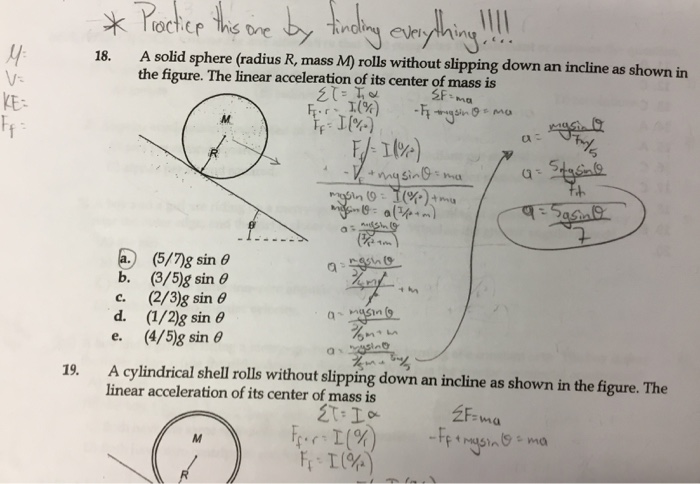 * Practice this one by finding everything!!!!
μ:
V=
KE=
Ff=
18. A solid sphere (radius R, mass M) rolls without slipping down an incline as shown in
the figure. The linear acceleration of its center of mass is
Στ = Iα
ΣF=ma
Ff·r = I(a/r)
-Ff+mgsinθ = ma
Ff = I(a/r²)
M
R
θ
Ff = I(a/r²)
-Ff+mgsinθ = ma
mgsinθ = I(a/r²)+ma
mgsinθ = a(I/r²+m)
a = mgsinθ
(I/r²+m)
a = mgsinθ
+m
a = mgsinθ
2/5m+m
a = mgsinθ
2/5m+5m/5
a = mgsinθ
7m/5
a = 5mgsinθ
7m
a = 5gsinθ
7
a. (5/7)g sin θ
b. (3/5)g sin θ
c. (2/3)g sin θ
d. (1/2)g sin θ
e. (4/5)g sin θ
19. A cylindrical shell rolls without slipping down an incline as shown in the figure. The
linear acceleration of its center of mass is
Στ = Iα
ΣF=ma
Ff·r = I(a/r)
-Ff+mgsinθ = ma
Ff = I(a/r²)
M
R